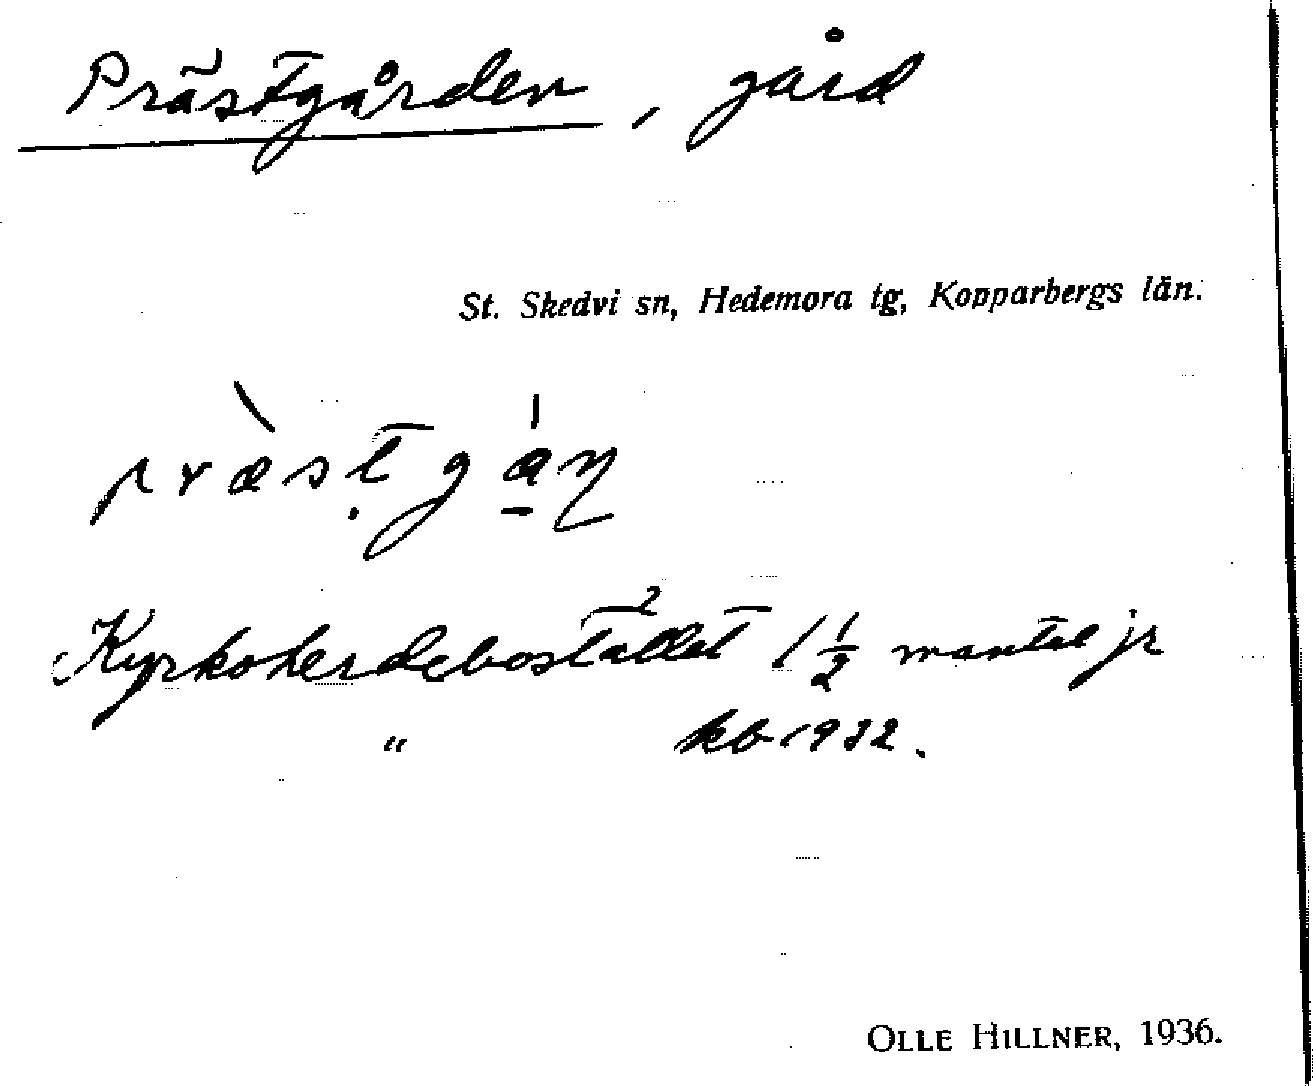 Prästgården, gård
St. Skedvi sn, Hedemora tg, Kopparbergs län.
præ̀sṭgá̱ɳ
Kyrkoherdebostället 1 1/2 mantal jr
" kb 1932.
OLLE HILLNER, 1936.